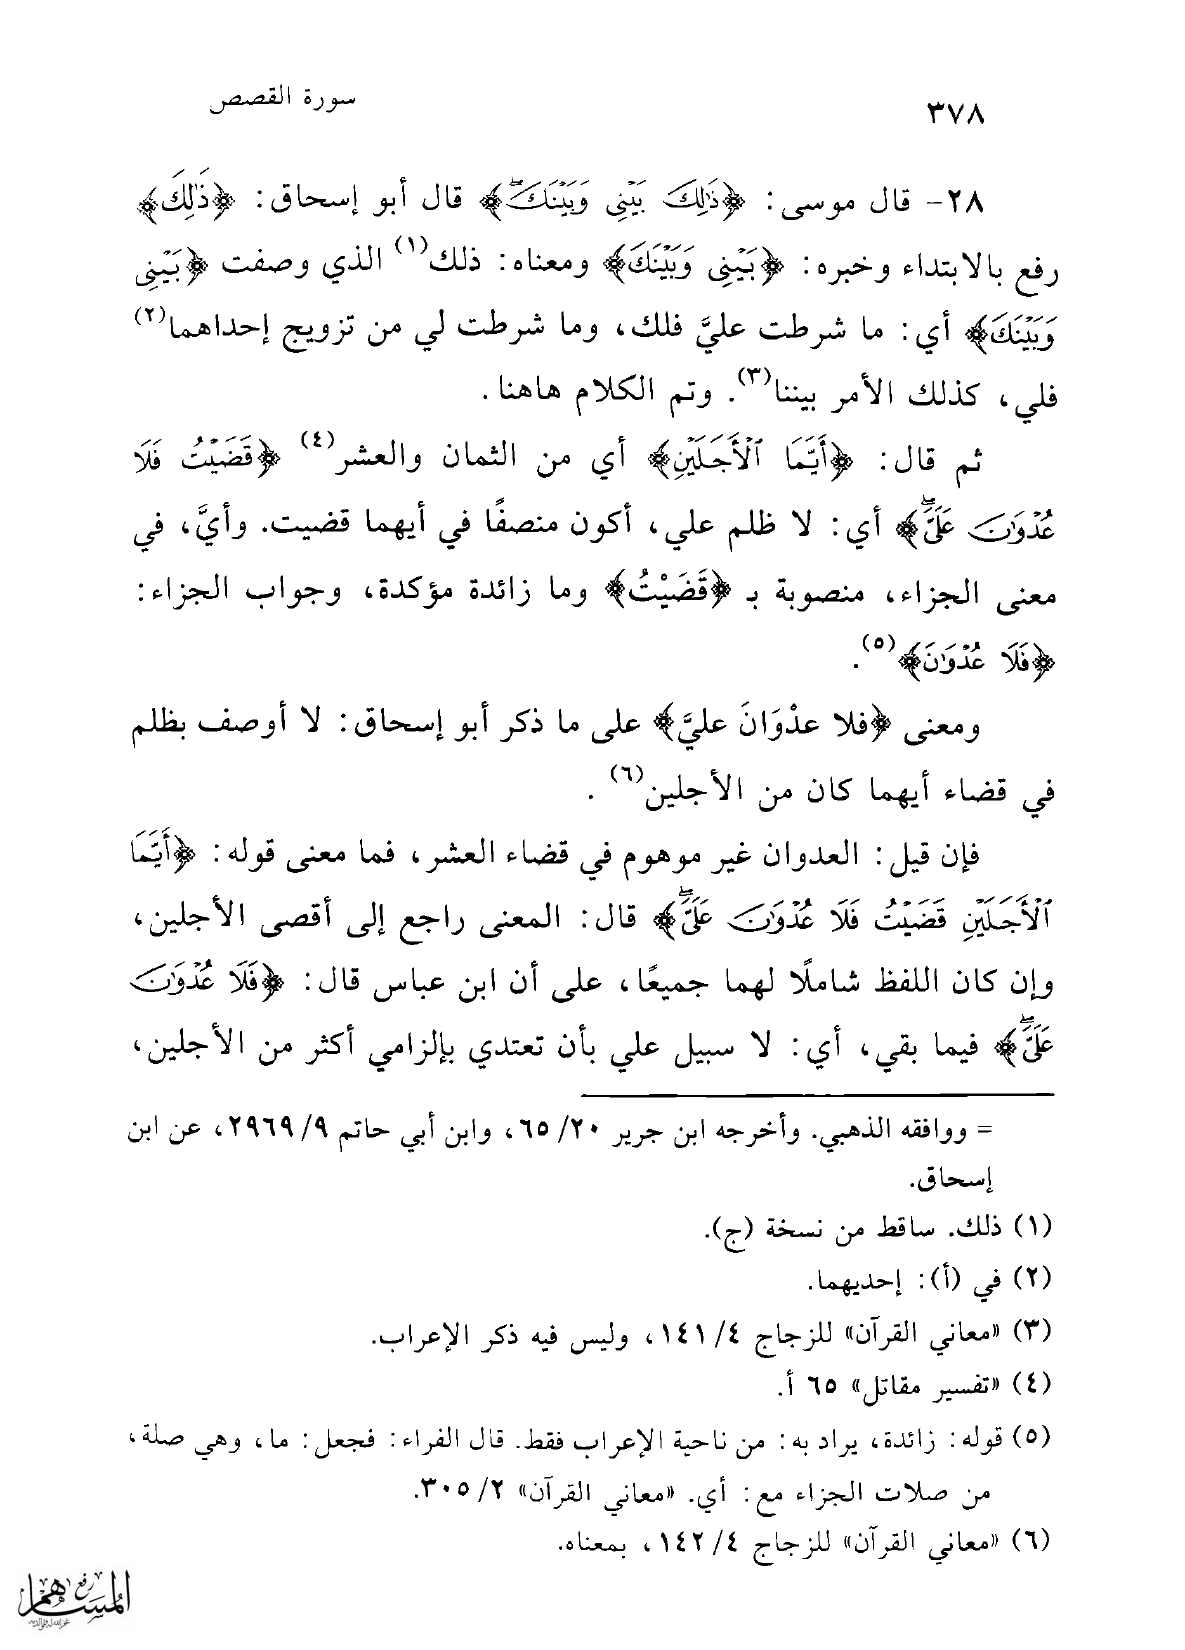 ٣٧٨
سورة القصص
٢٨- قال موسى: ﴿ذَٰلِكَ بَيْنِي وَبَيْنَكَ ۖ﴾ قال أبو إسحاق: ﴿ذَٰلِكَ﴾
رفع بالابتداء وخبره: ﴿بَيْنِي وَبَيْنَكَ﴾ ومعناه: ذلك(١) الذي وصفت ﴿بَيْنِي
وَبَيْنَكَ﴾ أي: ما شرطت عليَّ فلك، وما شرطت لي من تزويج إحداهما(٢)
فلي، كذلك الأمر بيننا(٣). وتم الكلام هاهنا.
ثم قال: ﴿أَيَّمَا ٱلْأَجَلَيْنِ﴾ أي من الثمان والعشر(٤) ﴿قَضَيْتُ فَلَا
عُدْوَٰنَ عَلَيَّ ۖ﴾ أي: لا ظلم علي، أكون منصفًا في أيهما قضيت. وأيَّ، في
معنى الجزاء، منصوبة بـ ﴿قَضَيْتُ﴾ وما زائدة مؤكدة، وجواب الجزاء:
﴿فَلَا عُدْوَٰنَ﴾(٥).
ومعنى ﴿فلا عدْوَانَ عليَّ﴾ على ما ذكر أبو إسحاق: لا أوصف بظلم
في قضاء أيهما كان من الأجلين(٦) .
فإن قيل: العدوان غير موهوم في قضاء العشر، فما معنى قوله: ﴿أَيَّمَا
ٱلْأَجَلَيْنِ قَضَيْتُ فَلَا عُدْوَٰنَ عَلَيَّ ۖ﴾ قال: المعنى راجع إلى أقصى الأجلين،
وإن كان اللفظ شاملًا لهما جميعًا، على أن ابن عباس قال: ﴿فَلَا عُدْوَٰنَ
عَلَيَّ ۖ﴾ فيما بقي، أي: لا سبيل علي بأن تعتدي بإلزامي أكثر من الأجلين،
= ووافقه الذهبي. وأخرجه ابن جرير ٢٠/ ٦٥، وابن أبي حاتم ٩/ ٢٩٦٩، عن ابن
إسحاق.
(١) ذلك. ساقط من نسخة (ج).
(٢) في (أ): إحديهما.
(٣) «معاني القرآن» للزجاج ٤/ ١٤١، وليس فيه ذكر الإعراب.
(٤) «تفسير مقاتل» ٦٥ أ.
(٥) قوله: زائدة، يراد به: من ناحية الإعراب فقط. قال الفراء: فجعل: ما، وهي صلة،
من صلات الجزاء مع: أي. «معاني القرآن» ٢/ ٣٠٥.
(٦) «معاني القرآن» للزجاج ٤/ ١٤٢، بمعناه.